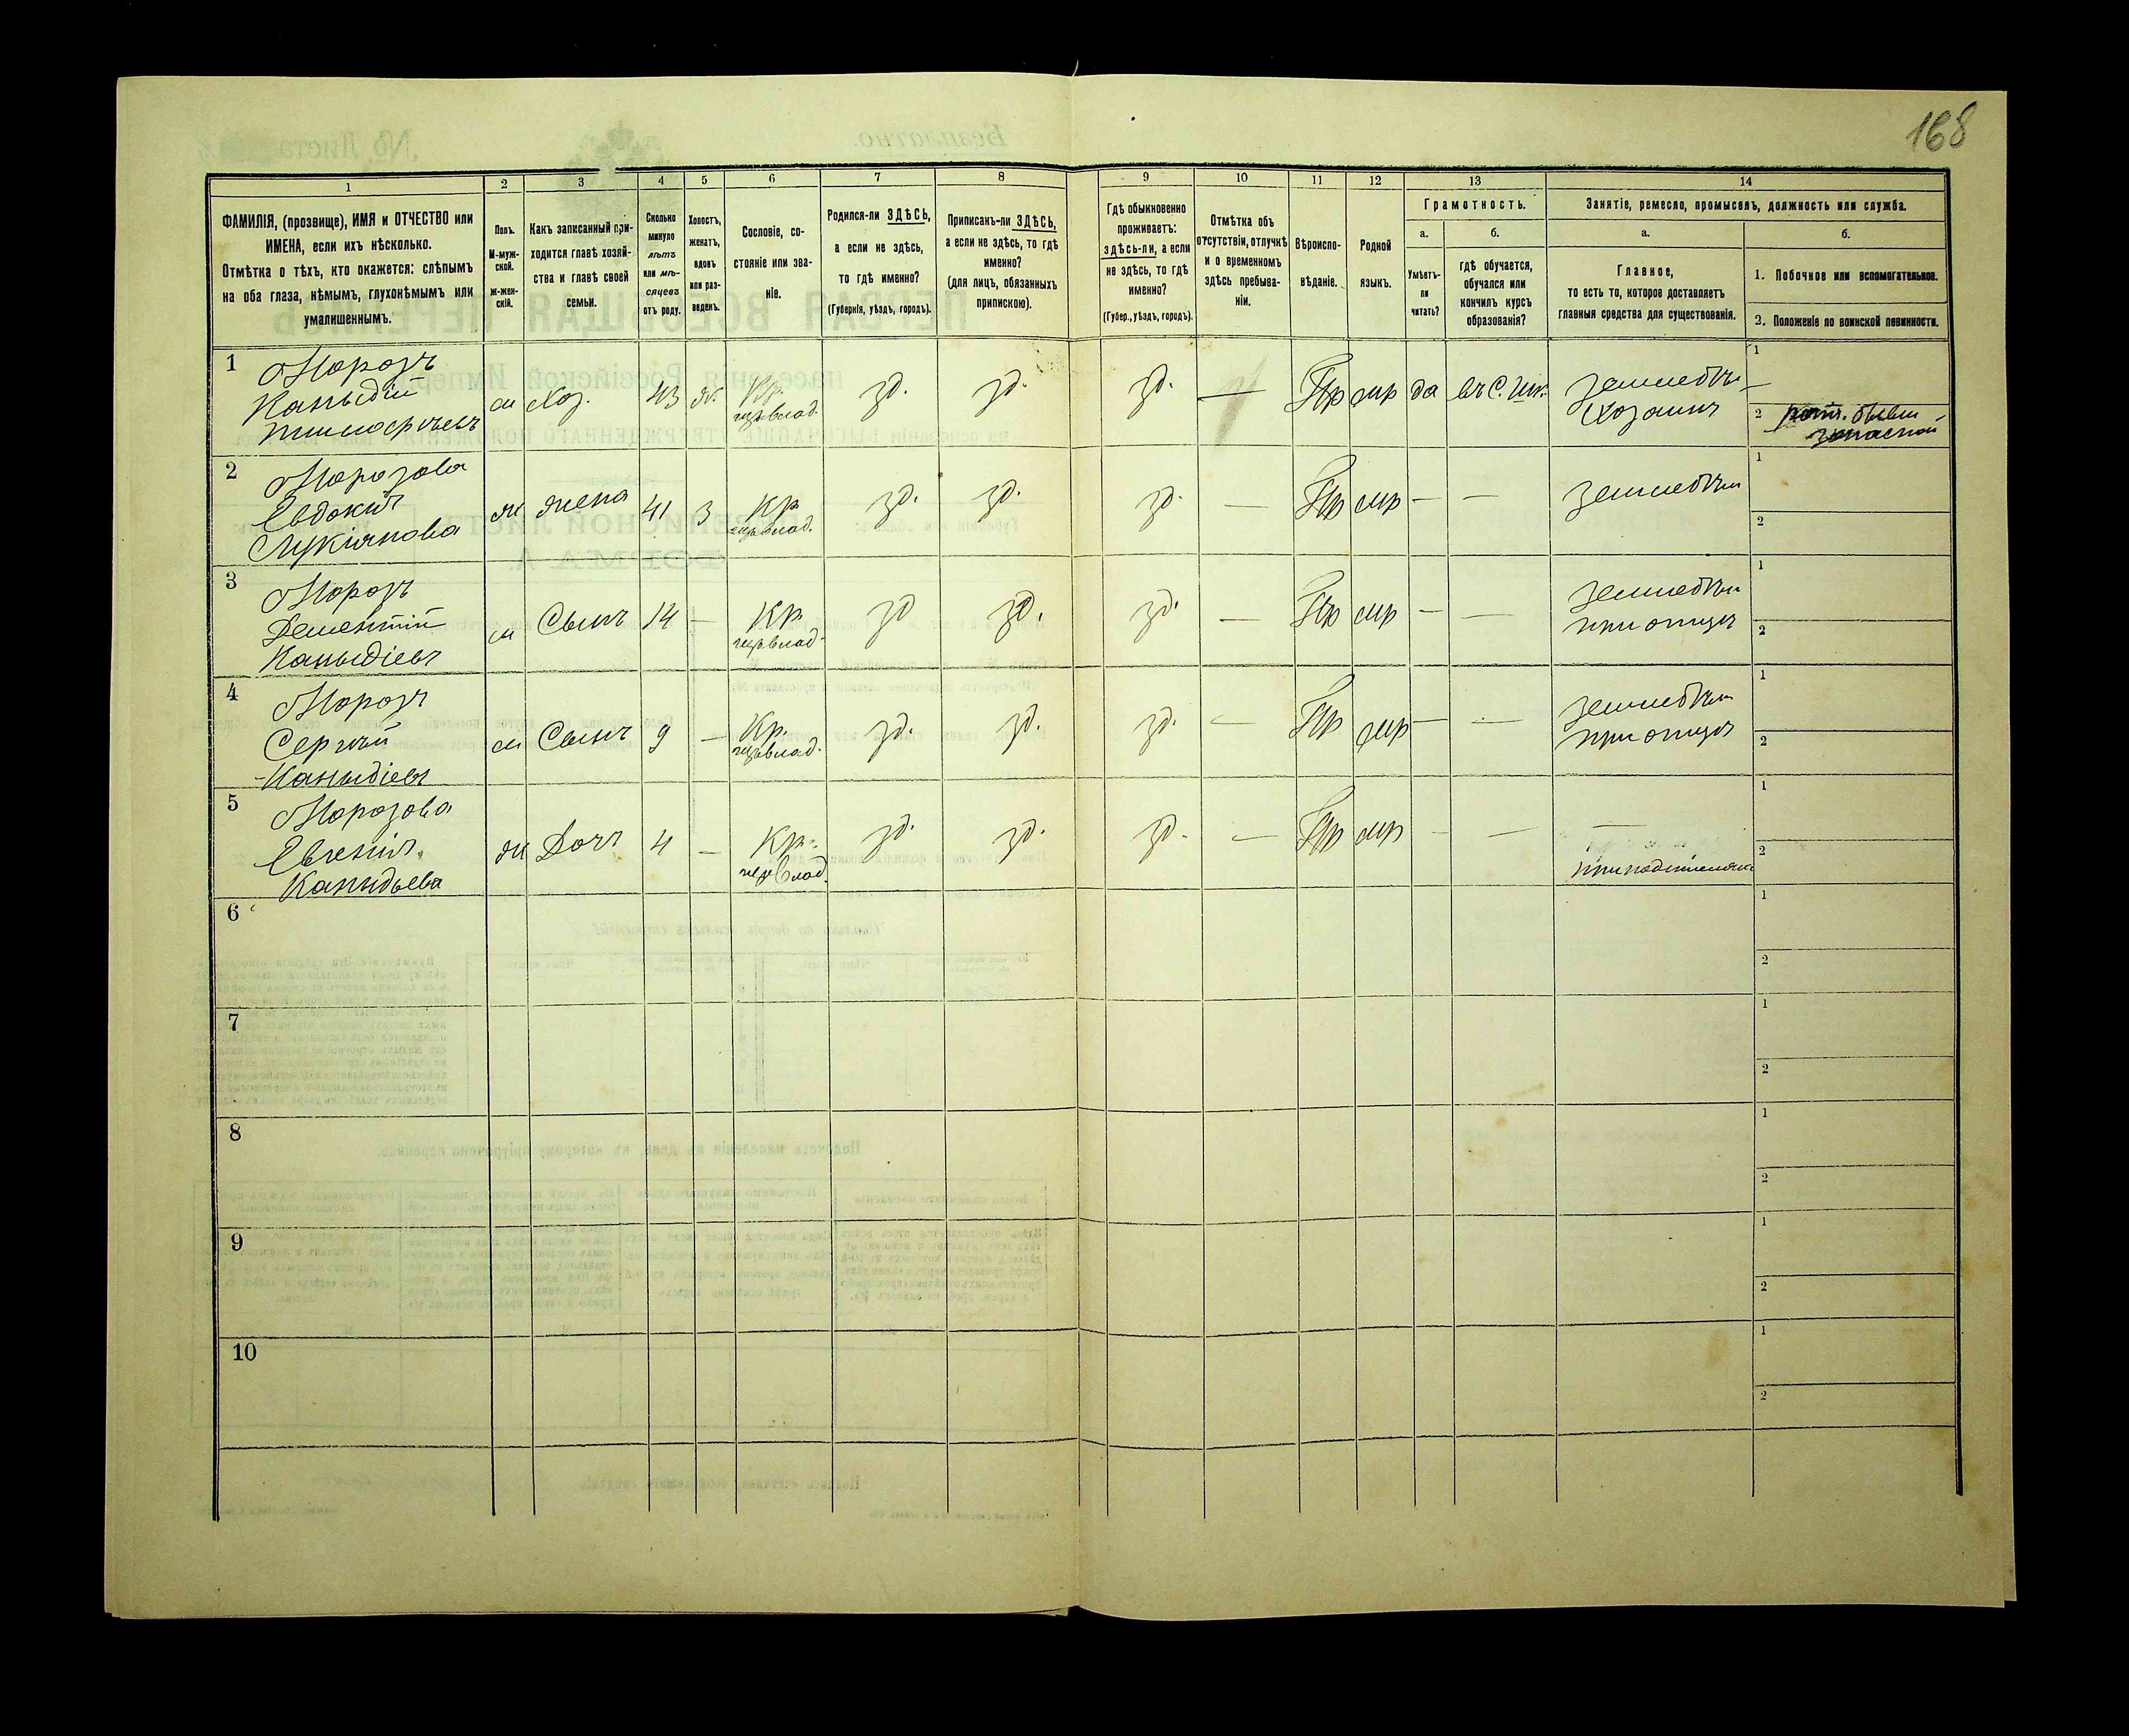 168
1
2
3
4
5
6
7
8
9
10
11
12
13
14
ФАМИЛІЯ, (прозвище), ИМЯ и ОТЧЕСТВО или
ИМЕНА, если ихъ нѣсколько.
Отмѣтка о тѣхъ, кто окажется: слѣпымъ
на оба глаза, нѣмымъ, глухонѣмымъ или
умалишеннымъ.
Полъ.
М-муж-
ской.
ж-жен-
скій.
Какъ записанный при-
ходится главѣ хозяй-
ства и главѣ своей
семьи.
Сколько
минуло
лѣтъ
или мѣ-
сяцевъ
отъ роду.
Холостъ,
женатъ,
вдовъ
или раз-
веденъ.
Сословіе, со-
стояніе или зва-
ніе.
Родился-ли ЗДѢСЬ,
а если не здѣсь,
то гдѣ именно?
(Губернія, уѣздъ, городъ).
Приписанъ-ли ЗДѢСЬ,
а если не здѣсь, то гдѣ
именно?
(для лицъ, обязанныхъ
припискою).
Гдѣ обыкновенно
проживаетъ:
здѣсь-ли, а если
не здѣсь, то гдѣ
именно?
(Губер., уѣздъ, городъ).
Отмѣтка объ
отсутствіи, отлучкѣ
и о временномъ
здѣсь пребыва-
ніи.
Вѣроиспо-
вѣданіе.
Родной
языкъ.
Грамотность.
а.
Умѣетъ-
ли
читать?
б.
гдѣ обучается,
обучался или
кончилъ курсъ
образованія?
Занятіе, ремесло, промыселъ, должность или служба.
а.
Главное,
то есть то, которое доставляетъ
главныя средства для существованія.
б.
1. Побочное или вспомогательное.
2. Положеніе по воинской повинности.
1
Морозъ
Каныдій
м
Хоз.
43
ж.
Кр.
зд.
зд.
зд.
—
Пр
мр
да
въ С. Шк.
Хозаинъ
1
—
2
2
Морозова
Евдокия
Лукіянова
ж
жена
41
з
Кр
зд.
зд.
зд.
—
Пр
мр
—
—
1
2
3
Морозъ
Дементій
Каныдіевъ
м
Сынъ
14
—
Кр.
зд
зд.
зд.
—
Пр
мр
—
—
при отцѣ
1
2
4
Морозъ
Сергѣй
Каныдіевъ
м
Сынъ
9
—
Кр.
зд.
зд.
зд.
—
Пр
мр
—
—
при отцѣ
1
2
5
Морозова
Евгенія
Каныдьева
ж
Дочъ
4
—
Кр.
зд.
зд.
зд.
—
Пр
мр
—
—
—
1
2
6
1
2
7
1
2
8
1
2
9
1
2
10
1
2